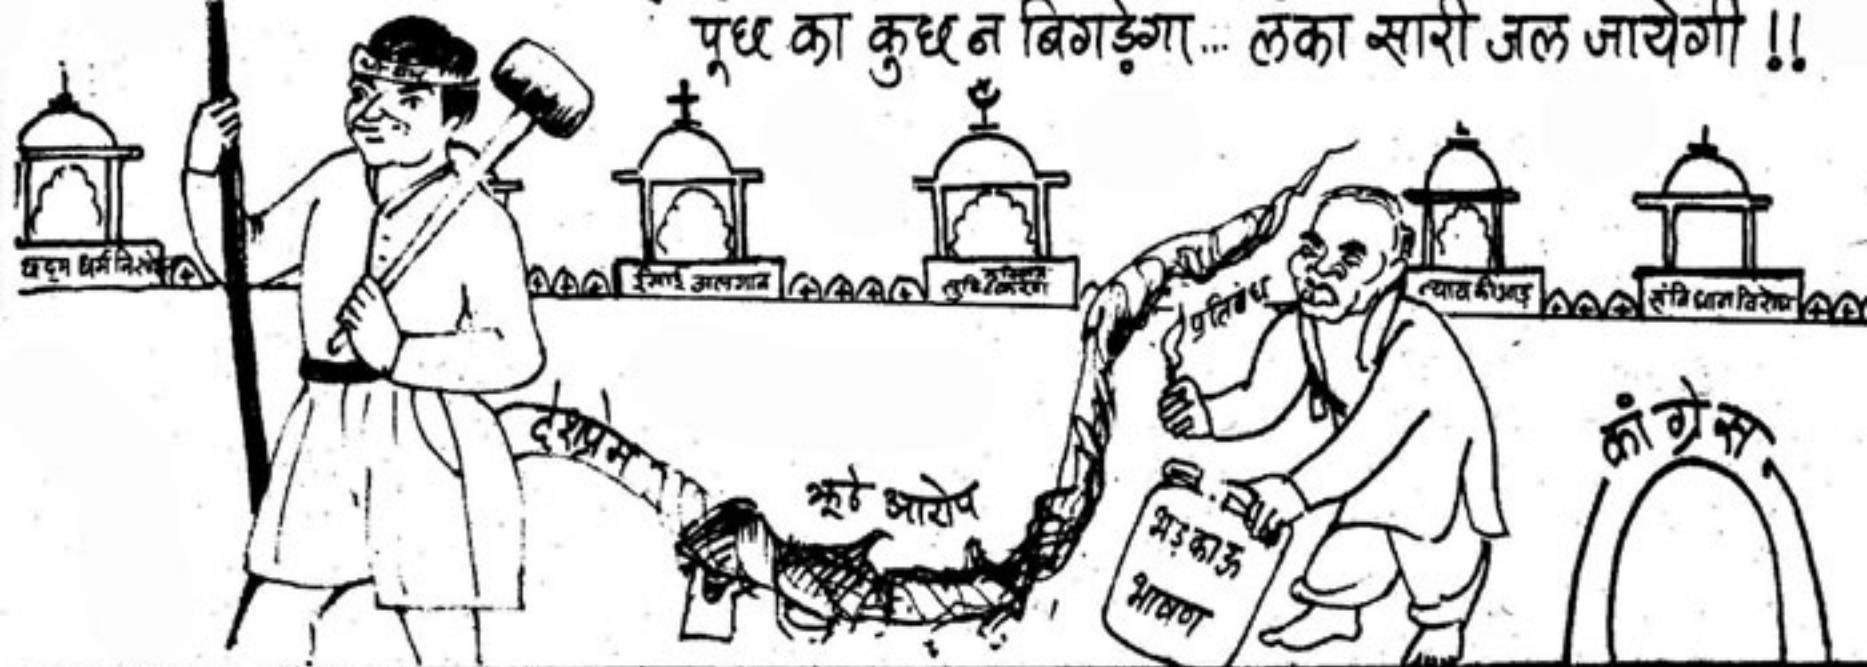 पूछ का कुछ न बिगड़ेगा... लंका सारी जल जायेगी !!
छद्म धर्म
ईसाई अलगाव
तुष्टिकरण
न्याय की आड़
संविधान विरोध
प्रतिबंध
कांग्रेस
देशप्रेम
झूठे आरोप
भड़काऊ
भाषण